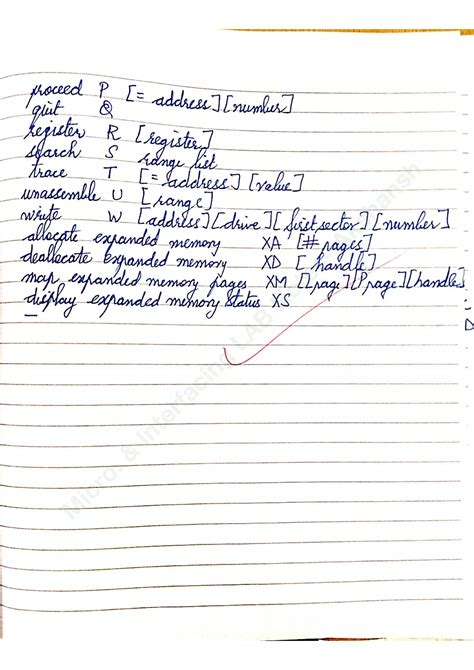 proceed P [= address] [number]
quit Q
register R [register]
search S range list
trace T [= address] [value]
unassemble U [range]
write W [address] [drive] [firstsector] [number]
allocate expanded memory XA [# pages]
deallocate expanded memory XD [handle]
map expanded memory pages XM [Lpage] [Ppage] [handle]
display expanded memory status XS
Micro. & Interfacing LAB